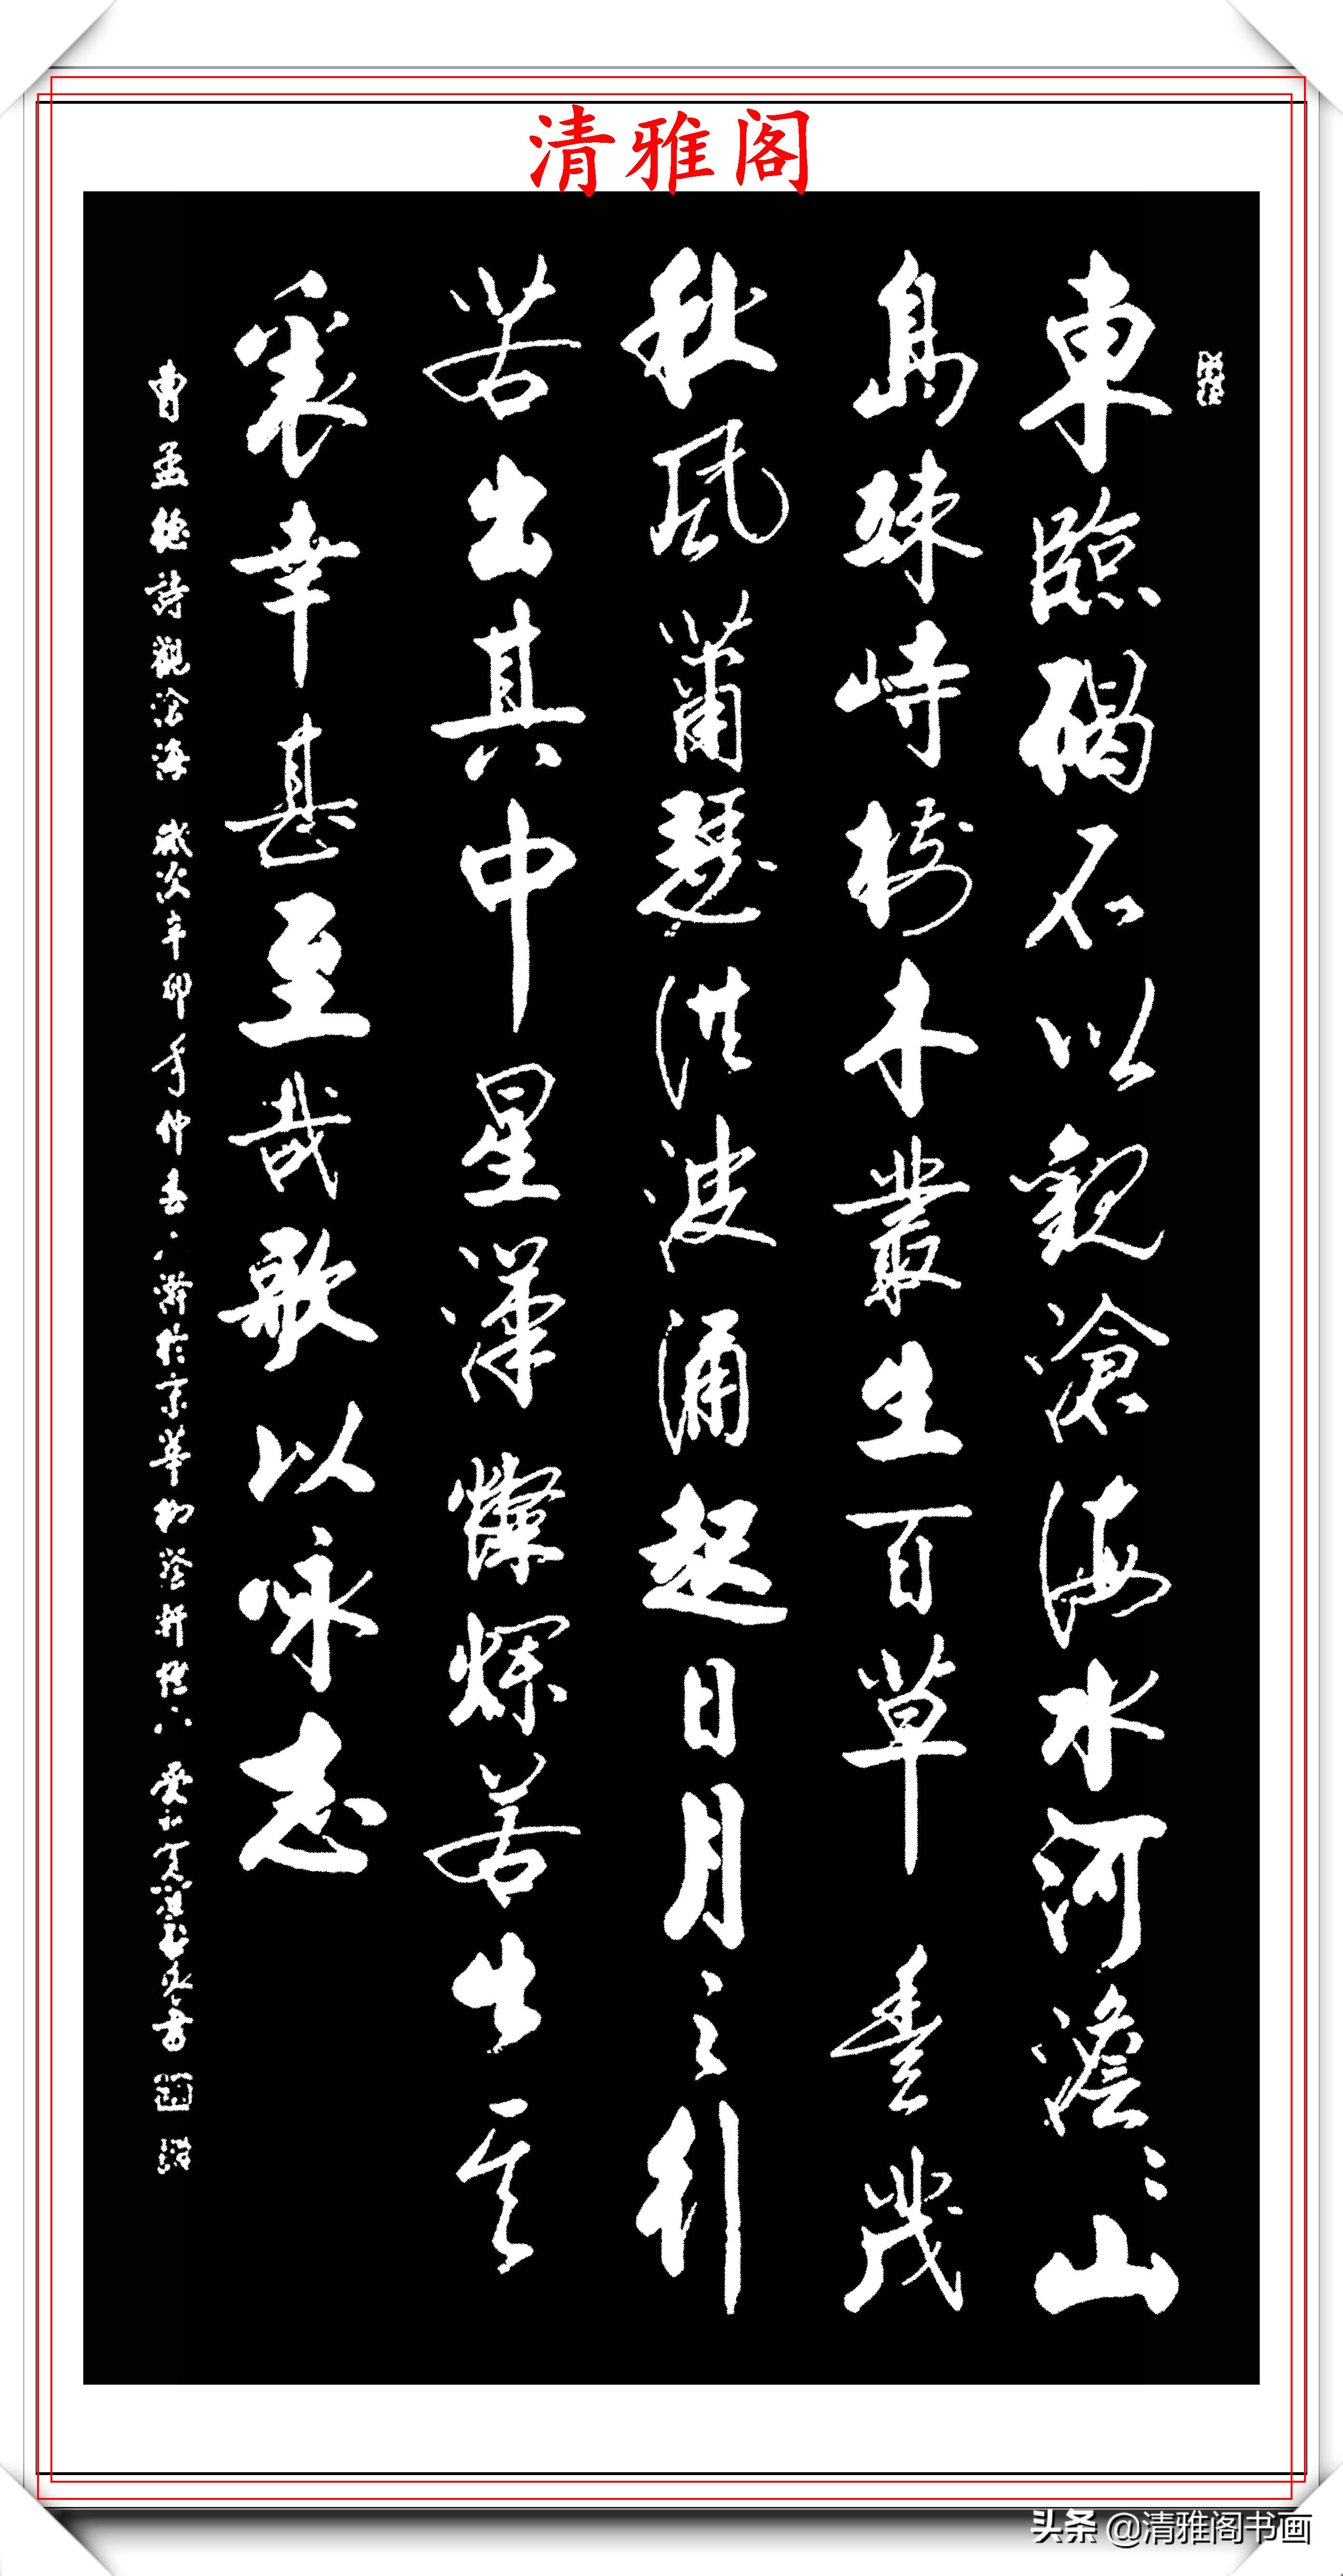 清雅阁
東臨碣石以觀滄海水河澹澹山
島竦峙樹木叢生百草豐茂
秋風蕭瑟洪波涌起日月之行
若出其中星漢燦爛若出其
裏幸甚至哉歌以咏志
曹孟德詩觀滄海 歲次辛卯年仲春 於京華 書
头条 @清雅阁书画